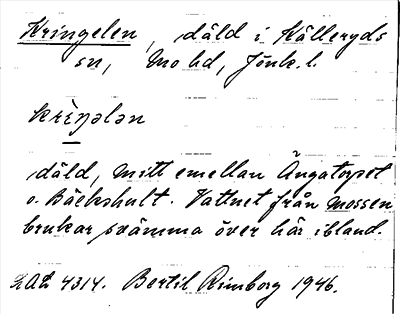 Kringelen, däld i Källeryds
sn, Mo hd, Jönk. l.
krìŋələn
däld, mitt emellan Ängatorpet
o. Bäckshult. Vattnet från mossen
brukar svämma över här ibland.
4314. Bertil Rimborg 1946.